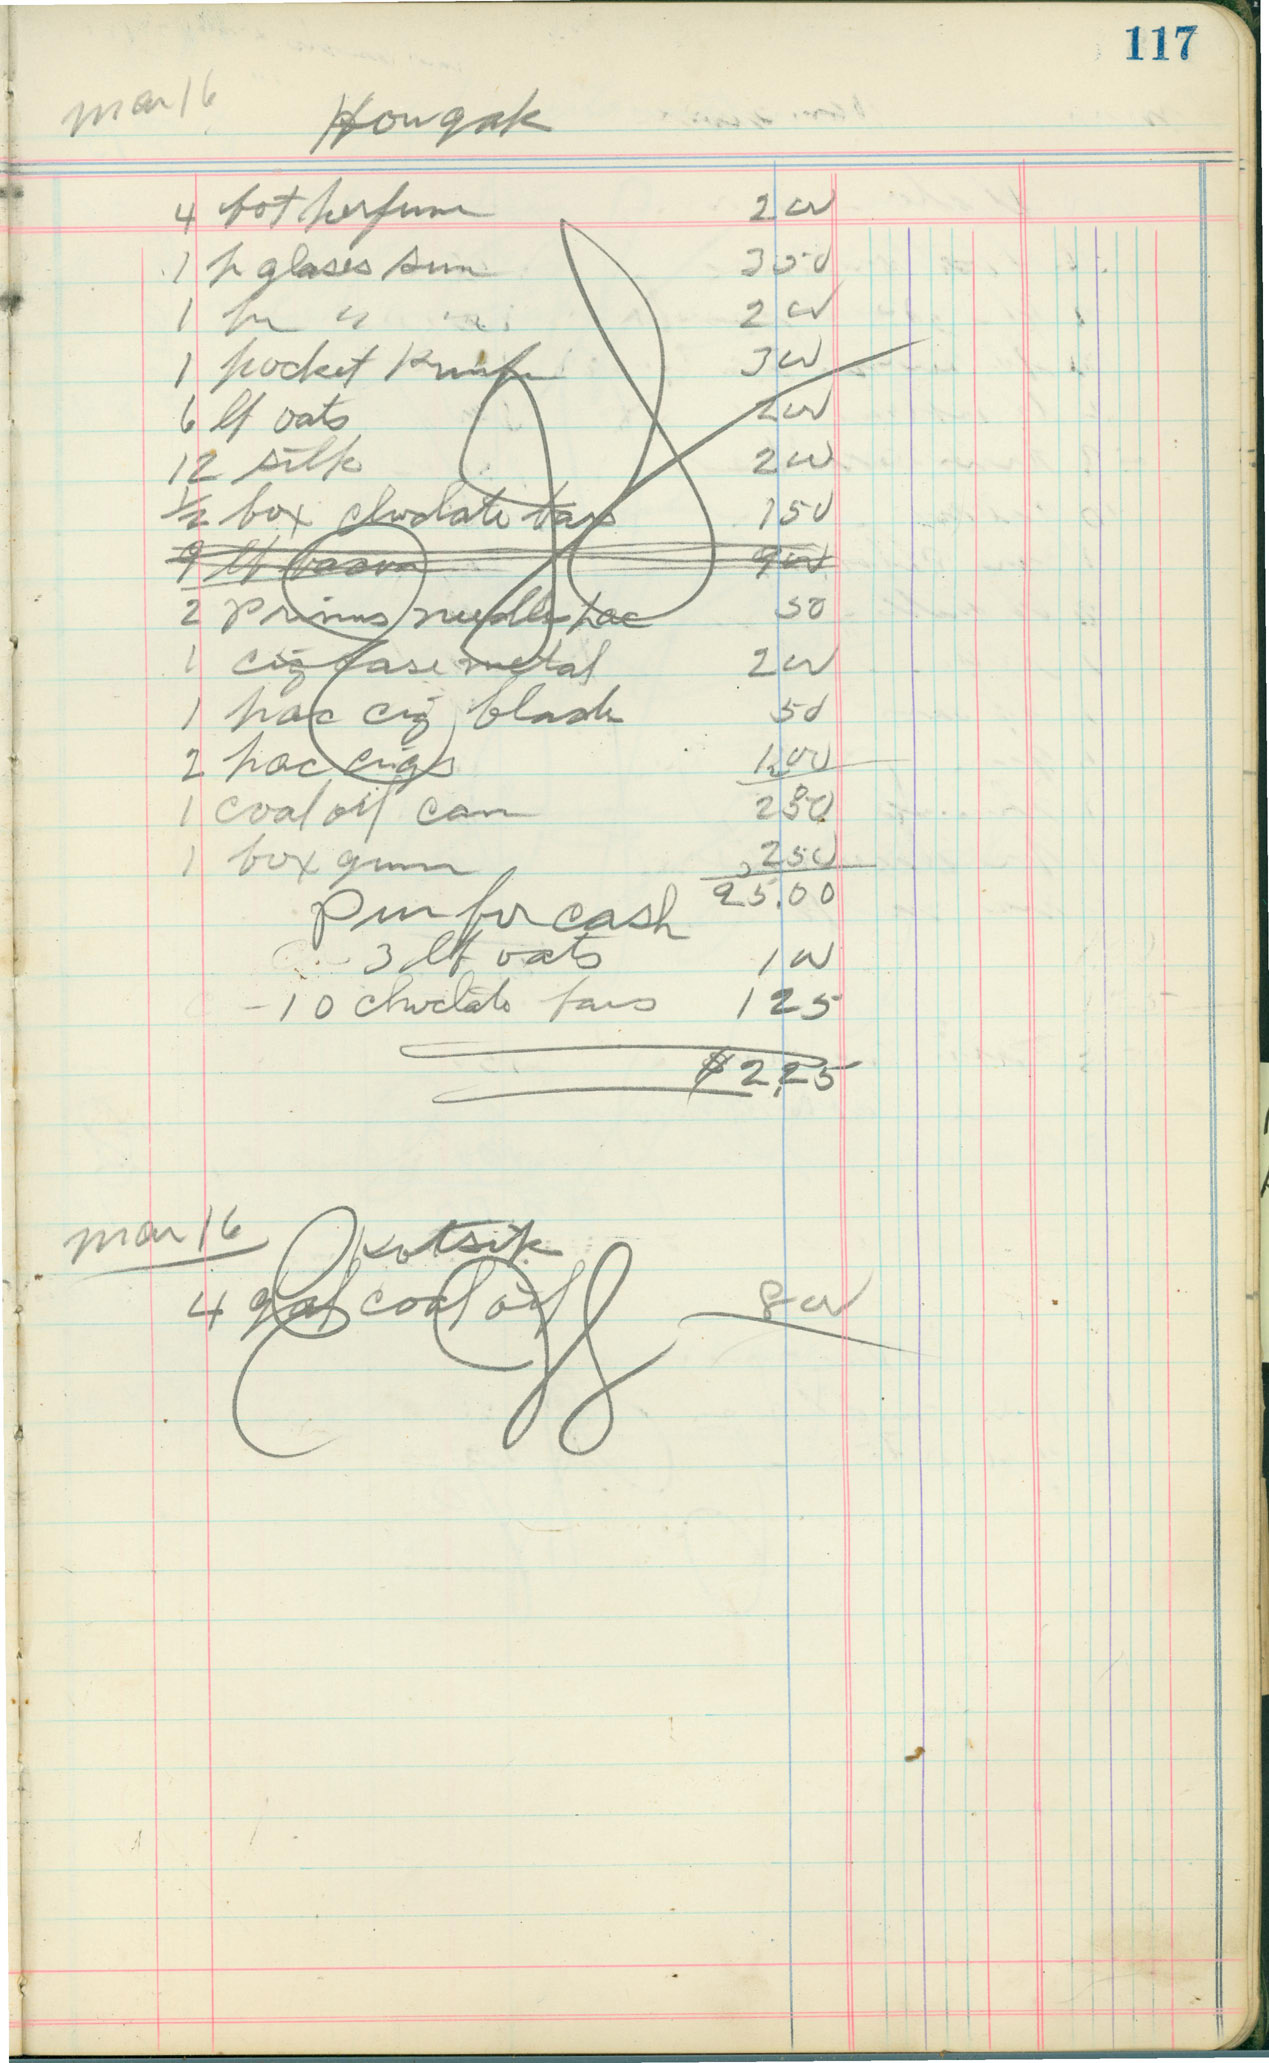 117
Mar 16 Hougak
4 bot perfume 2 00
1 pr glases sun 3 50
1 pr " " 2 00
1 pocket Knife 3 00
6 lb oats 2 00
12 silk 2 00
1/2 box choclate bars 1 50
9 lb 9 00
2 primus needle pac 50
1 cig case metal 2 00
1 pac cig black 50
2 pac cigs 1.00
1 coal oil can 2 50
1 box gum 2 50
25.00
Pur for cash
3 lb oats 1 00
- 10 choclate bars 1 25
$2.25
Mar 16 Kotsik
4 gal coal oil 8 00